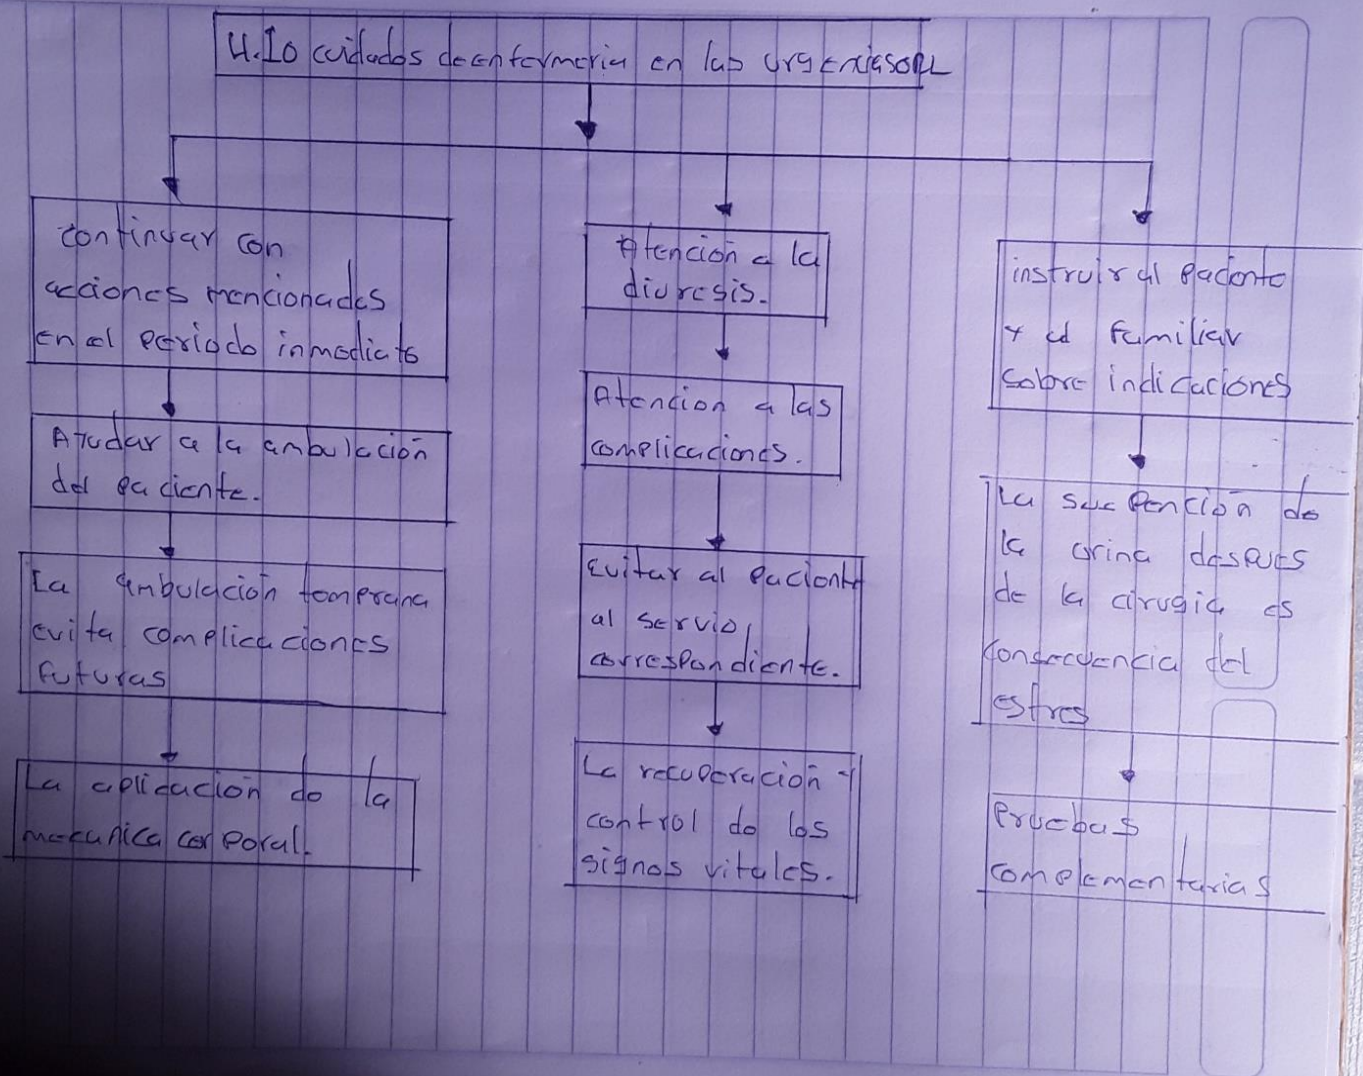 4.10 cuidados de enfermeria en las urgenciasORL
continuar con
acciones mencionadas
en el periodo inmediato
Ayudar a la ambulación
del paciente.
La ambulación temprana
evita complicaciones
futuras
La aplicación de la
mecanica corporal.
Atención a la
diuresis.
Atencion a las
complicaciones.
Evitar al paciente
al servio
correspondiente.
La recuperación y
control de los
signos vitales.
instruir al paciente
y al familiar
sobre indicaciones
La suspención de
la orina despues
de la cirugia es
consecuencia del
estres
pruebas
complementarias